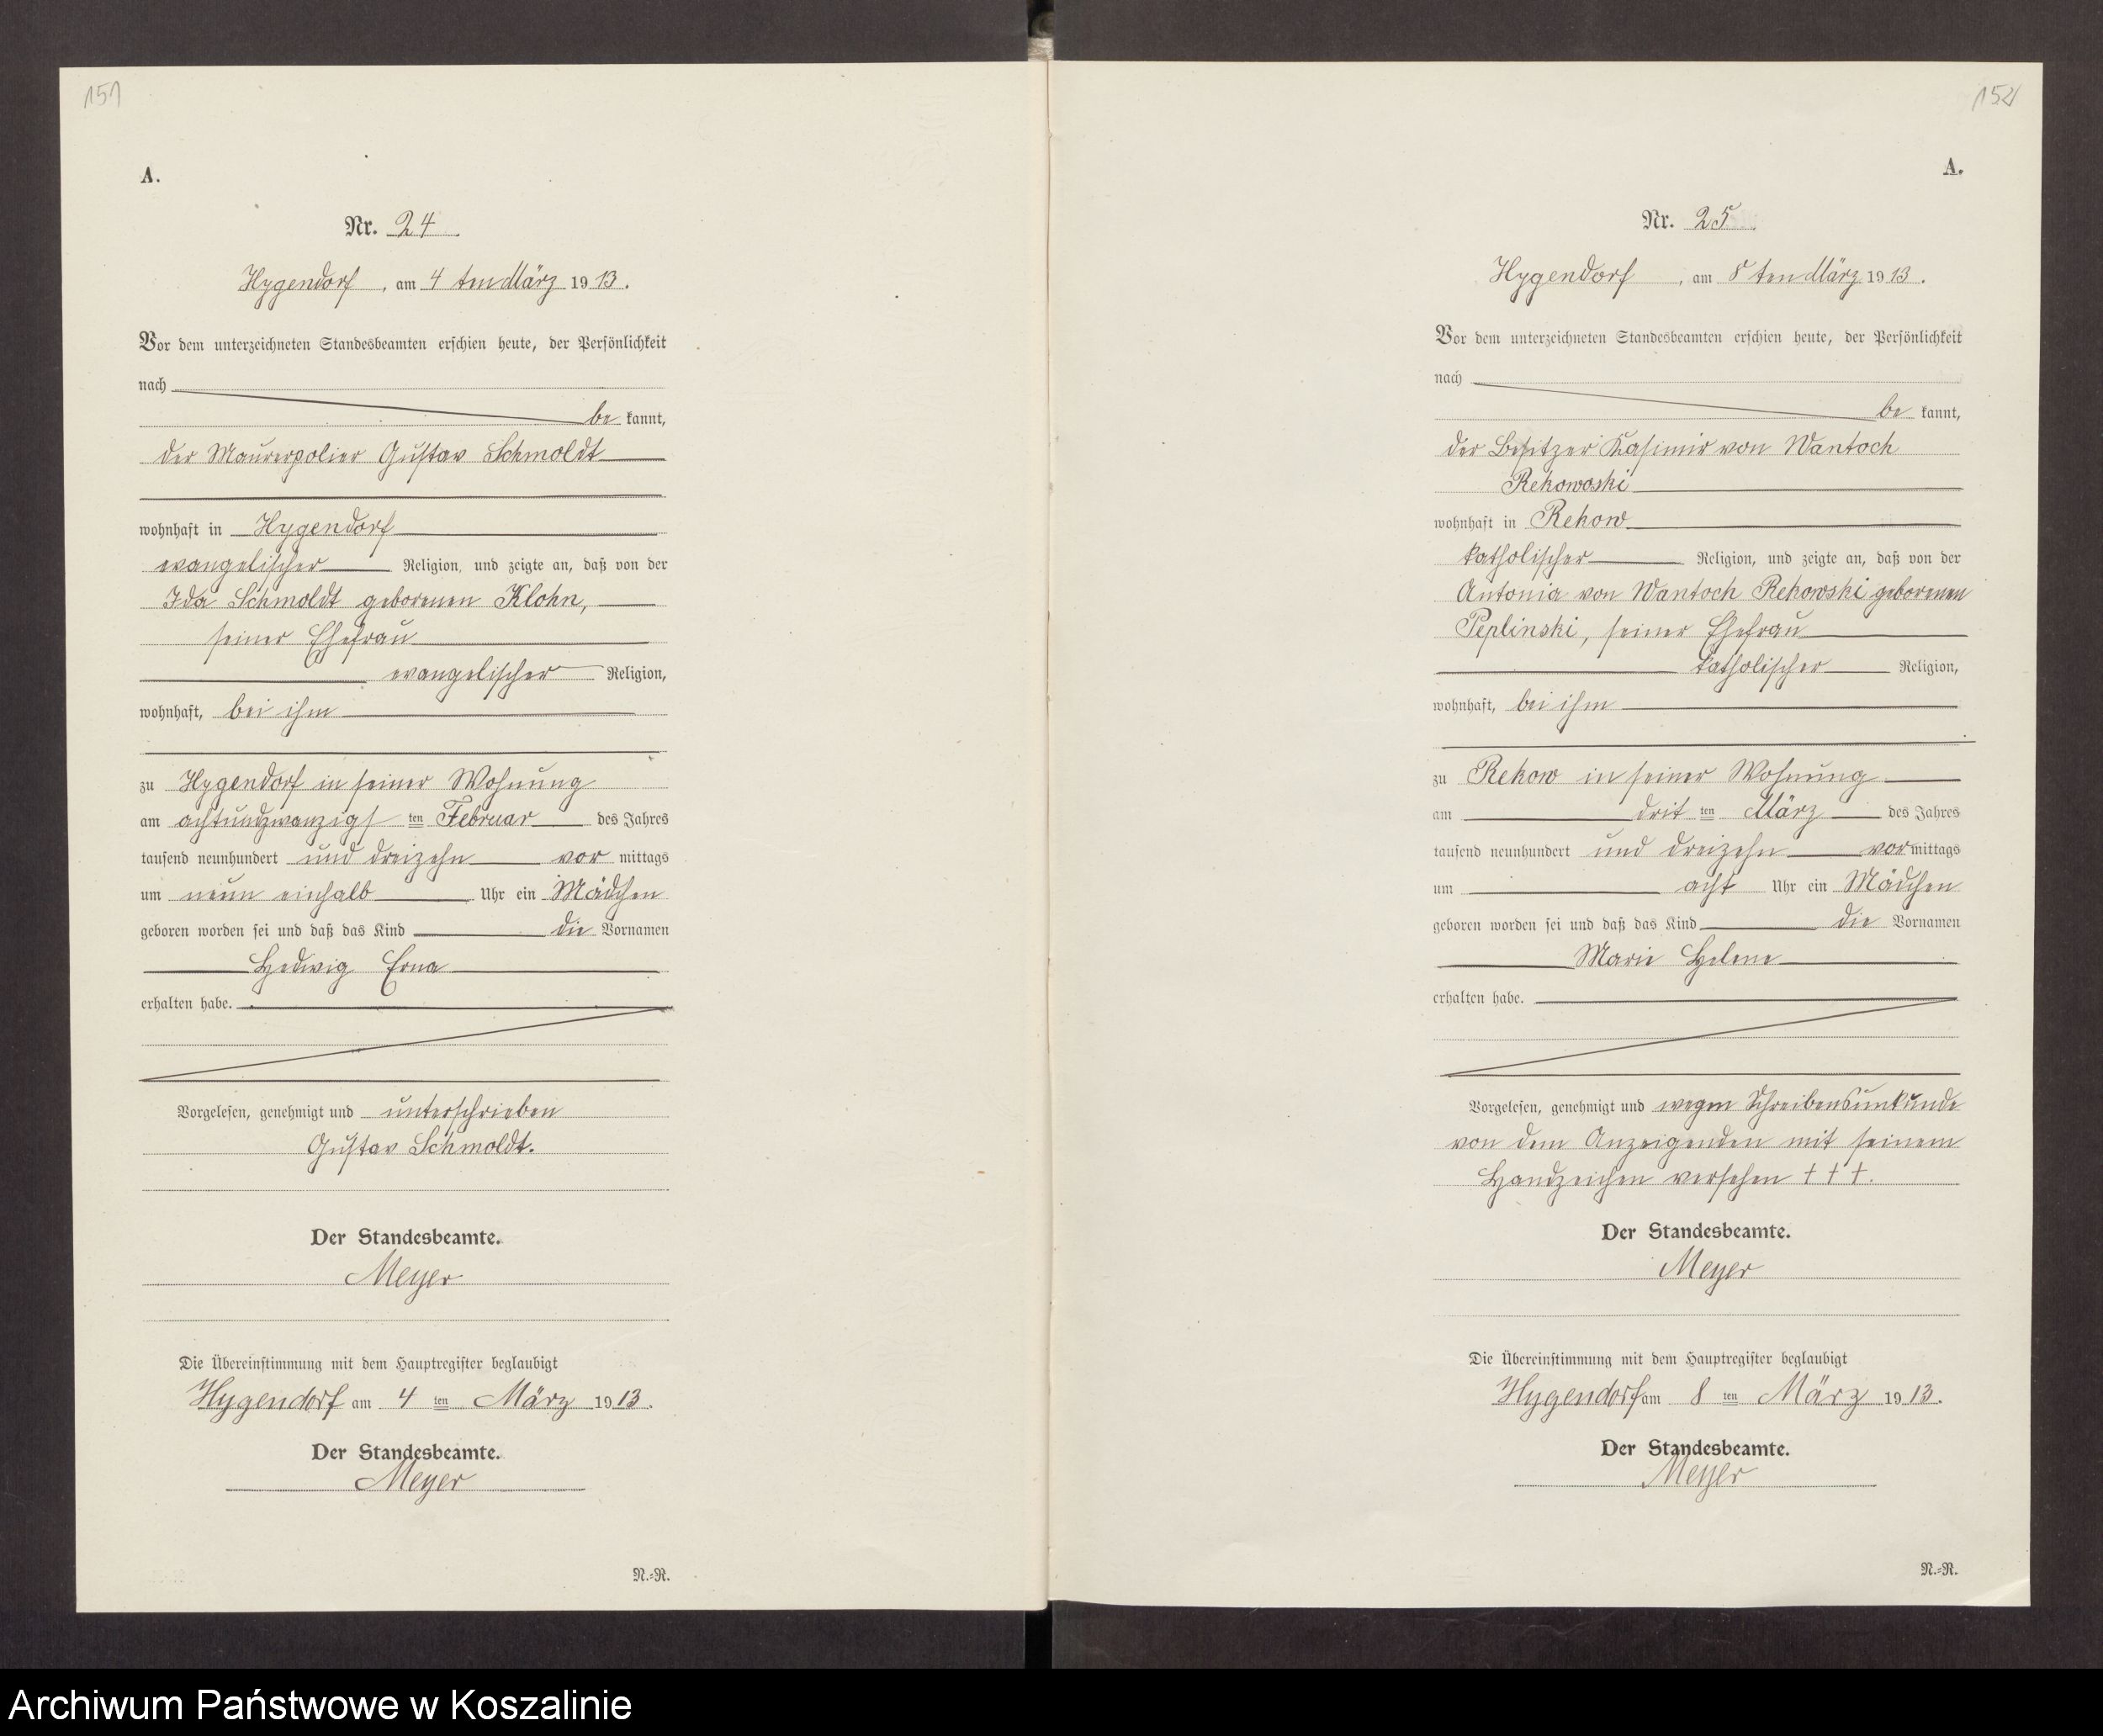 151
A.
Nr. 24
Hygendorf, am 4 ten März 1913.
Vor dem unterzeichneten Standesbeamten erschien heute, der Persönlichkeit
nach
be kannt,
der Maurerpolier Gustav Schmoldt
wohnhaft in Hygendorf
evangelischer Religion, und zeigte an, daß von der
Ida Schmoldt geborenen Klohn,
seiner Ehefrau
evangelischer Religion,
wohnhaft, bei ihm
zu Hygendorf in seiner Wohnung
am achtundzwanzigs ten Februar des Jahres
tausend neunhundert und dreizehn vor mittags
um neun einhalb Uhr ein Mädchen
geboren worden sei und daß das Kind die Vornamen
Hedwig Erna
erhalten habe.
Vorgelesen, genehmigt und unterschrieben
Gustav Schmoldt.
Der Standesbeamte.
Meyer
Die Übereinstimmung mit dem Hauptregister beglaubigt
Hygendorf am 4 ten März 1913.
Der Standesbeamte.
Meyer
N.-R.
152
A.
Nr. 25
Hygendorf, am 8 ten März 1913.
Vor dem unterzeichneten Standesbeamten erschien heute, der Persönlichkeit
nach
be kannt,
der Besitzer Kasimir von Wantoch
Rekowoski
wohnhaft in Rekow
katholischer Religion, und zeigte an, daß von der
Antonia von Wantoch Rekowski geborenen
Peplinski, seiner Ehefrau
katholischer Religion,
wohnhaft, bei ihm
zu Rekow in seiner Wohnung
am drit ten März des Jahres
tausend neunhundert und dreizehn vormittags
um acht Uhr ein Mädchen
geboren worden sei und daß das Kind die Vornamen
Marie Helene
erhalten habe.
Vorgelesen, genehmigt und wegen Schreibensunkunde
von dem Anzeigenden mit seinem
Handzeichen versehen † † †.
Der Standesbeamte.
Meyer
Die Übereinstimmung mit dem Hauptregister beglaubigt
Hygendorf am 8 ten März 1913.
Der Standesbeamte.
Meyer
N.-R.
Archiwum Państwowe w Koszalinie